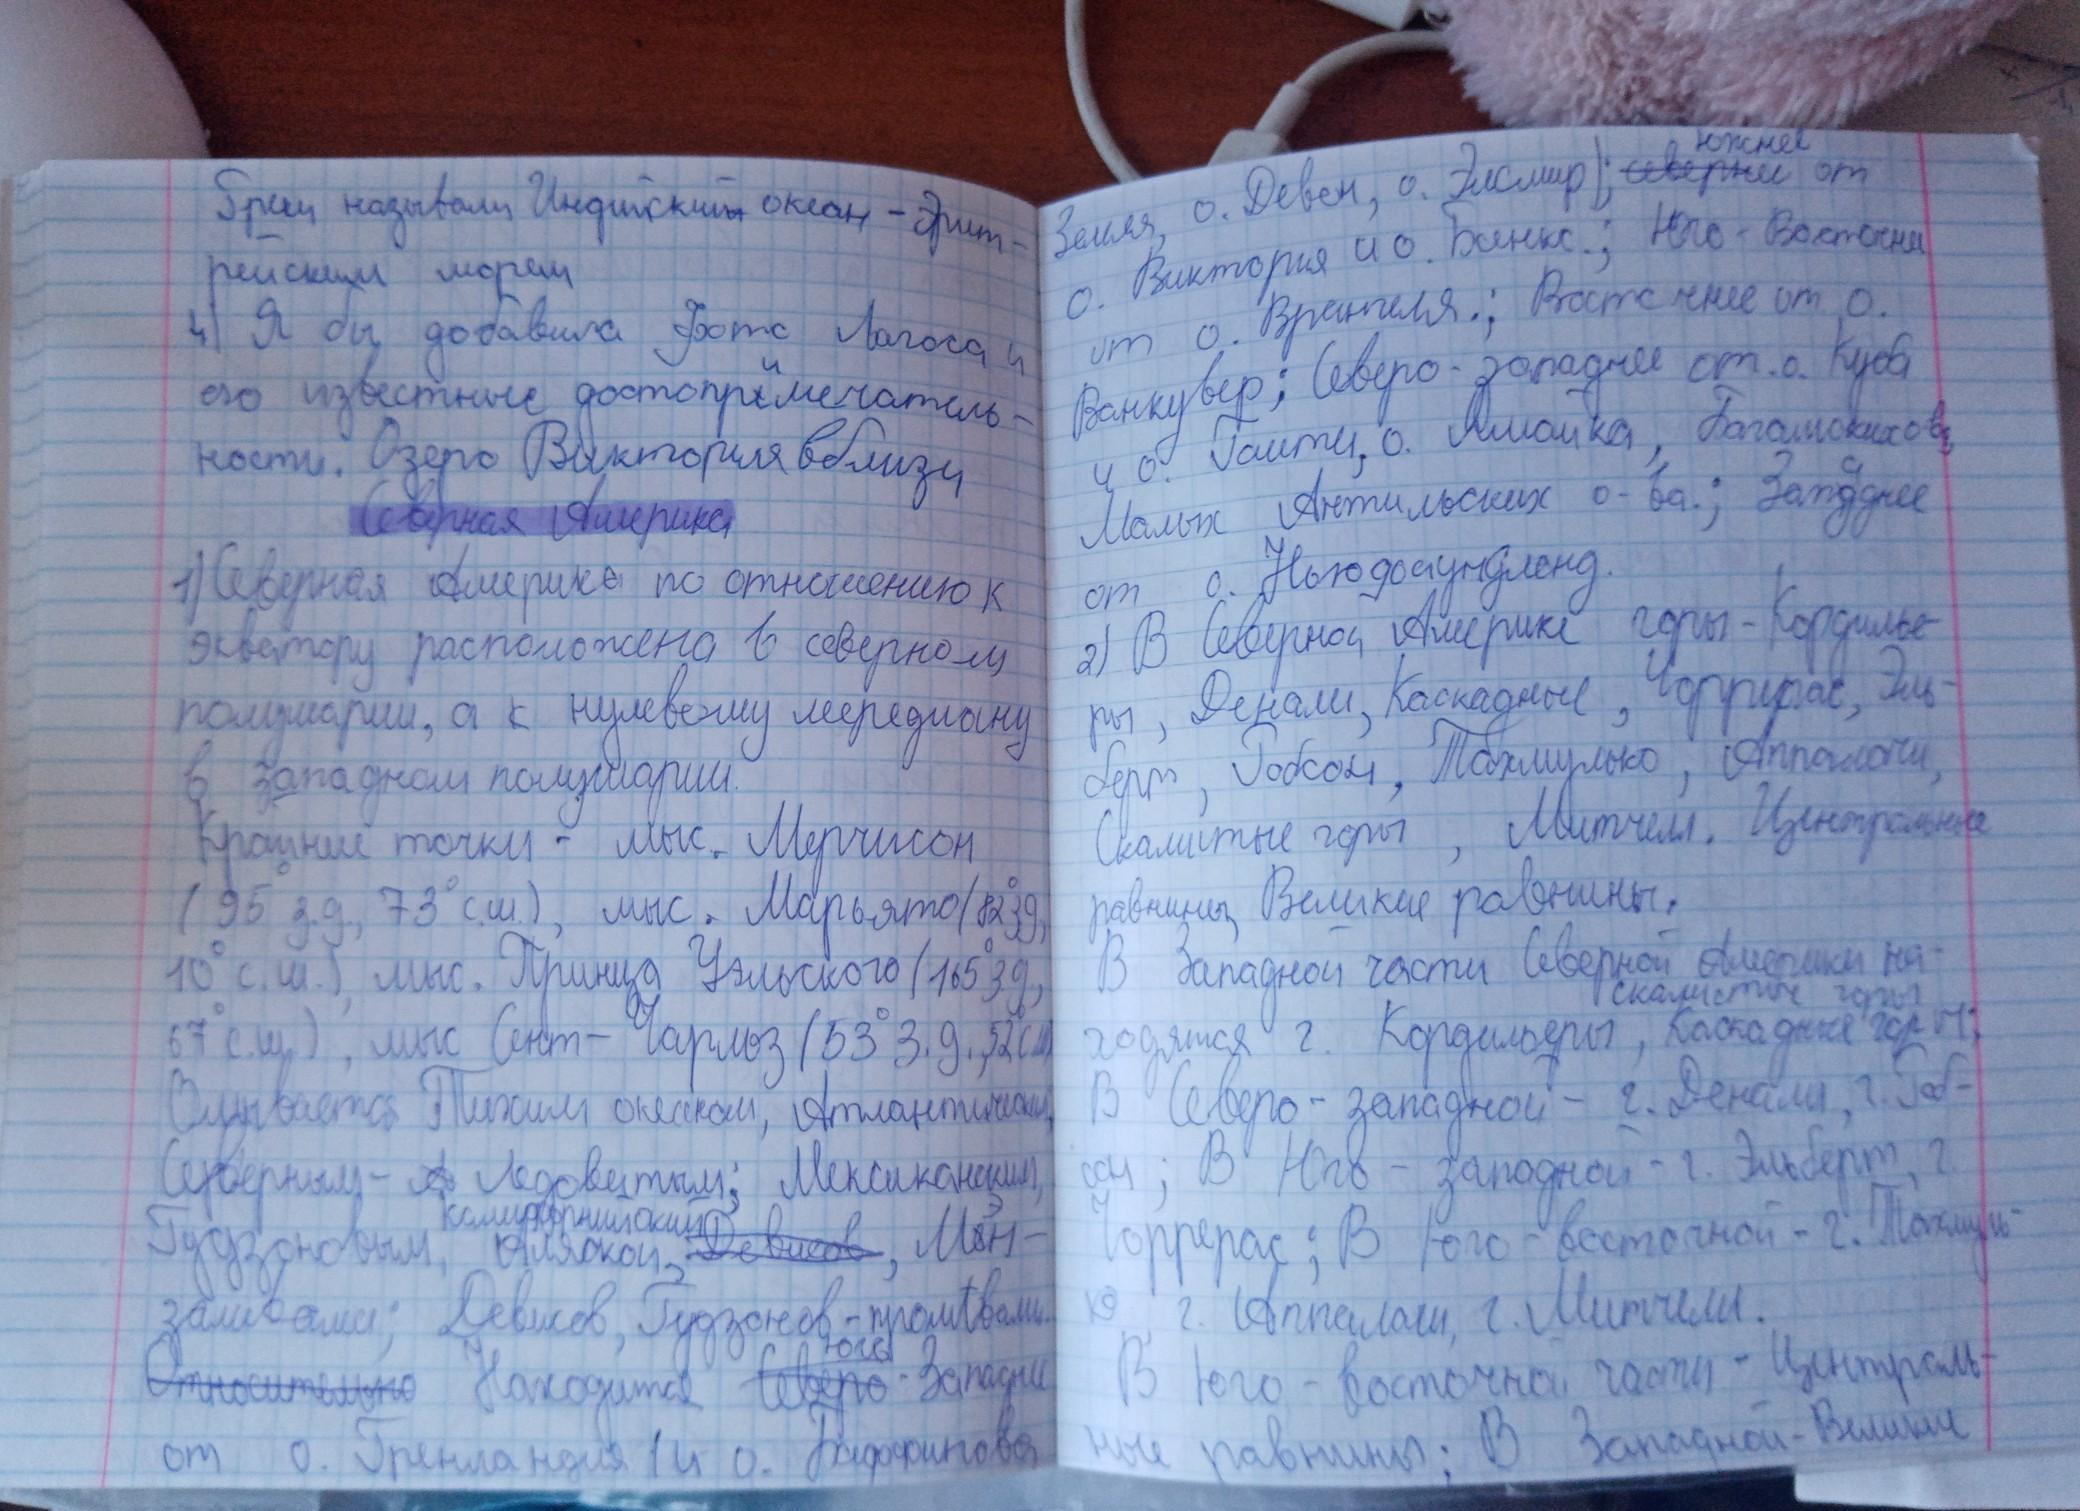 Греки называли Индийский океан - Эрит-
рейским морем
4) Я бы добавила Фото Лагоса и
его известные достопримечатель-
ности. Озеро Виктория вблизи
Северная Америка
1) Северная Америка по отношению к
экватору расположена в северном
полушарии, а к нулевому меридиану
в западном полушарии.
Крайние точки - мыс. Мерчисон
(95° з.д., 73° с.ш.), мыс. Марьято (82° з.д,
10° с.ш.), мыс. Принца Уэльского (165° з.д,
67° с.ш.), мыс Сент-Чарльз (53° з.д., 52° с.ш
Омывается Тихим океаном, Атлантическим,
Северным-Ледовитым; Мексиканским,
Калифорнийский
Гудзоновым, Аляской, Девисов, Мэн-
заливами; Девисов, Гудзонов - проливами.
Юго
Относительно Находится Северо-Западне
от о. Гренландия (и о. Баффинова
южнее
Земля, о. Девон, о. Элсмир); севернее от
о. Виктория и о. Бэнкс.; Юго-Восточне
от о. Врангеля.; Восточнее от о.
Ванкувер; Северо-западнее от о. Куба
и о. Гаити, о. Ямайка, Багамских о-в,
Малых Антильских о-ва.; Западнее
от о. Ньюфаундленд.
2) В Северной Америке горы - Кордилье-
ры, Денали, Каскадные, Чоррерас, Эль-
берт, Робсон, Тахмулько, Аппалачи,
Скалистые горы, Митчелл. Центральные
равнины, Великие равнины.
В Западной части Северной Америки на-
скалистые горы
ходятся г. Кордильеры, Каскадные горы;
В Северо-западной - г. Денали, г. Роб-
сон; В Юго-западной - г. Эльберт, г.
Чоррерас; В Юго-восточной - г. Тахмуль-
ко г. Аппалачи, г. Митчелл.
В Юго-восточной части - Централь-
ные равнины; В Западной - Великие